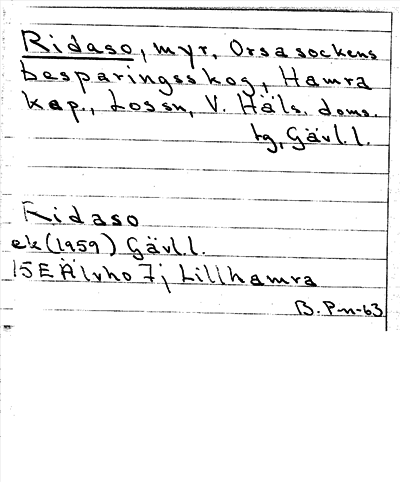 Ridaso, myr, Orsa sockens
besparingsskog, Hamra
kap., Lossn, V. Häls. doms.
tg, Gävl.l.
Ridaso
ek (1959) Gävl.l.
15E Älvho 7j Lillhamra
B. P-n-63